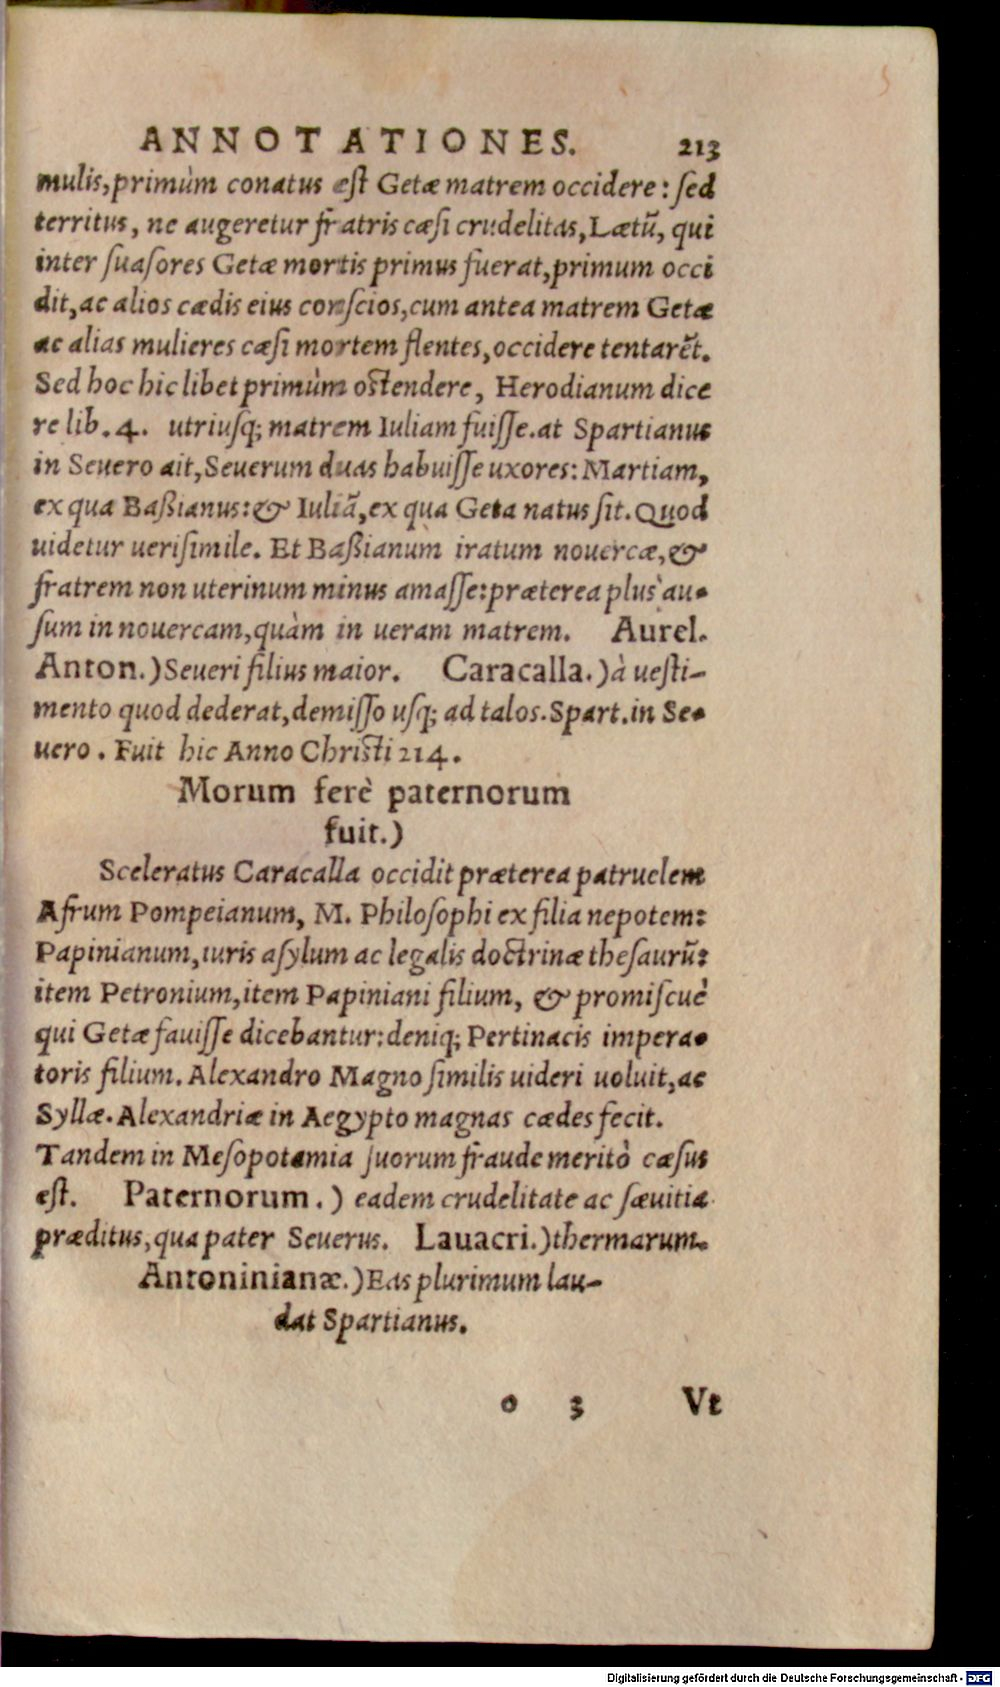 ANNOTATIONES. 213
mulis, primùm conatus est Getæ matrem occidere: sed
territus, ne augeretur fratris cæsi crudelitas, Lætũ, qui
inter suasores Getæ mortis primus fuerat, primum occi
dit, ac alios cædis eius conscios, cum antea matrem Getæ
ac alias mulieres cæsi mortem flentes, occidere tentarẽt.
Sed hoc hic libet primùm ostendere, Herodianum dice
re lib. 4. utriusq; matrem Iuliam fuisse. at Spartianus
in Seuero ait, Seuerum duas habuisse uxores: Martiam,
ex qua Baßianus: & Iuliã, ex qua Geta natus sit. Quod
uidetur uerisimile. Et Baßianum iratum nouercæ, &
fratrem non uterinum minus amasse: præterea plus au-
sum in nouercam, quàm in ueram matrem. Aurel.
Anton.) Seueri filius maior. Caracalla.) à uesti-
mento quod dederat, demisso usq; ad talos. Spart. in Se-
uero. Fuit hic Anno Christi 214.
Morum ferè paternorum
fuit.)
Sceleratus Caracalla occidit præterea patruelem
Afrum Pompeianum, M. Philosophi ex filia nepotem:
Papinianum, iuris asylum ac legalis doctrinæ thesaurũ:
item Petronium, item Papiniani filium, & promiscuè
qui Getæ fauisse dicebantur: deniq; Pertinacis impera-
toris filium. Alexandro Magno similis uideri uoluit, ac
Syllæ. Alexandriæ in Aegypto magnas cædes fecit.
Tandem in Mesopotamia suorum fraude meritò cæsus
est. Paternorum.) eadem crudelitate ac sæuitia
præditus, qua pater Seuerus. Lauacri.) thermarum.
Antoninianæ.) Eas plurimum lau-
dat Spartianus.
o 3 Vt
Digitalisierung gefördert durch die Deutsche Forschungsgemeinschaft - DFG